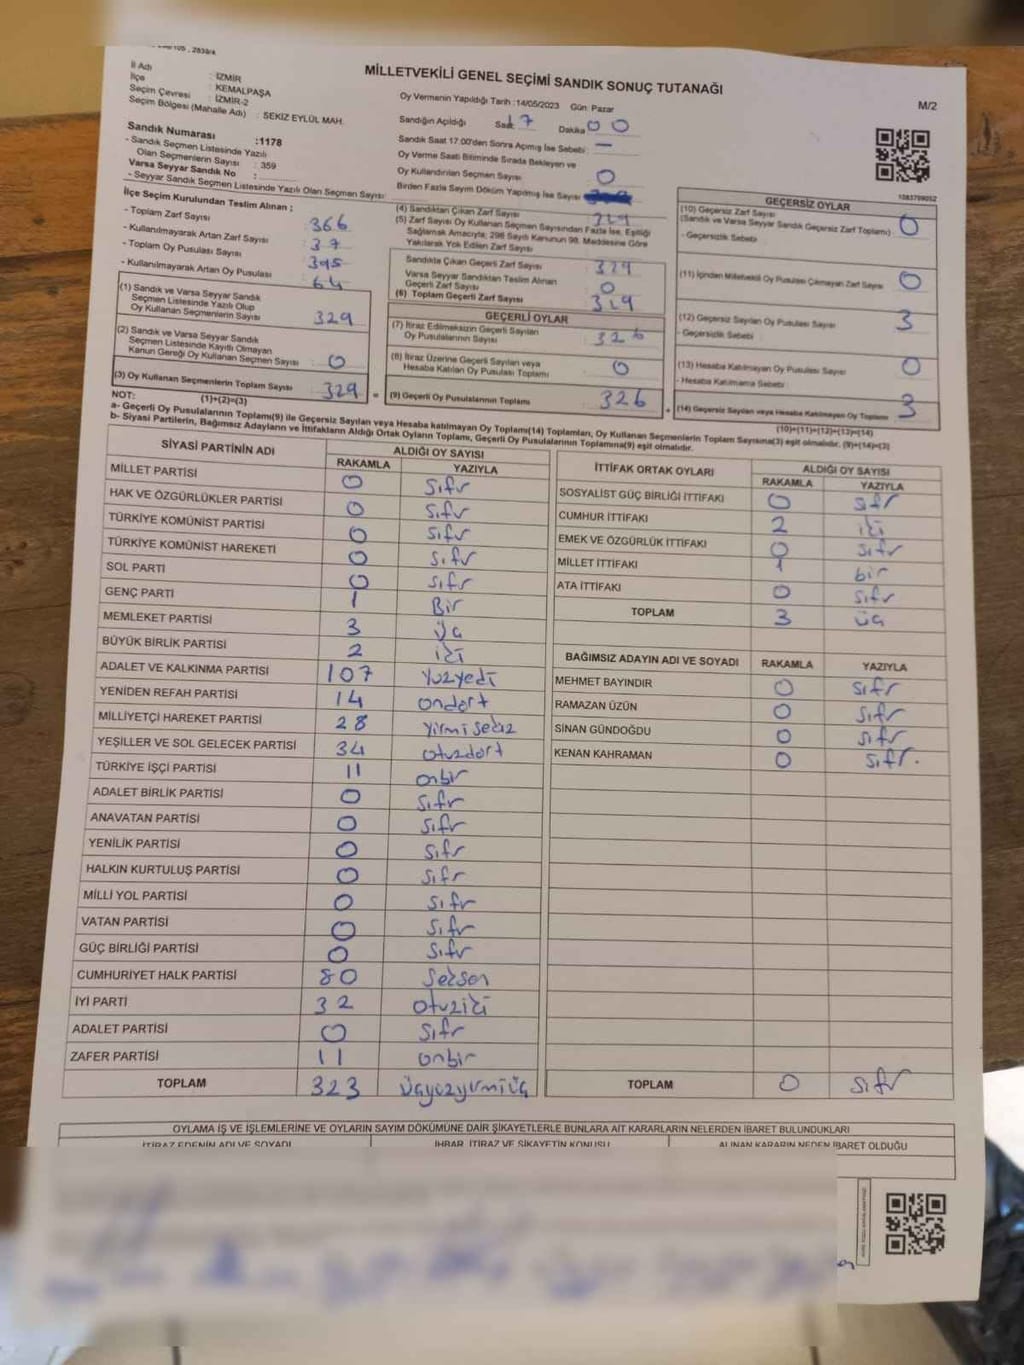 MİLLETVEKİLİ GENEL SEÇİMİ SANDIK SONUÇ TUTANAĞI
M/2
İl Adı : İZMİR
İlçe : KEMALPAŞA
Seçim Çevresi : İZMİR-2
Seçim Bölgesi (Mahalle Adı) : SEKİZ EYLÜL MAH.
Oy Vermenin Yapıldığı Tarih :14/05/2023 Gün Pazar
Sandığın Açıldığı Saat 17 Dakika 00
Sandık Saat 17.00'den Sonra Açılmış İse Sebebi : —
Oy Verme Saati Bitiminde Sırada Bekleyen ve
Oy Kullandırılan Seçmen Sayısı : 0
Birden Fazla Sayım Döküm Yapılmış İse Sayısı
Sandık Numarası :1178
- Sandık Seçmen Listesinde Yazılı
Olan Seçmenlerin Sayısı : 359
Varsa Seyyar Sandık No :
- Seyyar Sandık Seçmen Listesinde Yazılı Olan Seçmen Sayısı:
İlçe Seçim Kurulundan Teslim Alınan ;
- Toplam Zarf Sayısı : 366
- Kullanılmayarak Artan Zarf Sayısı : 37
- Toplam Oy Pusulası Sayısı : 395
- Kullanılmayarak Artan Oy Pusulası : 64
(1) Sandık ve Varsa Seyyar Sandık
Seçmen Listesinde Yazılı Olup
Oy Kullanan Seçmenlerin Sayısı : 329
(2) Sandık ve Varsa Seyyar Sandık
Seçmen Listesinde Kayıtlı Olmayan
Kanun Gereği Oy Kullanan Seçmen Sayısı : 0
(3) Oy Kullanan Seçmenlerin Toplam Sayısı : 329
(1)+(2)=(3)
(4) Sandıktan Çıkan Zarf Sayısı : 329
(5) Zarf Sayısı Oy Kullanan Seçmen Sayısından Fazla İse, Eşitliği
Sağlamak Amacıyla; 298 Sayılı Kanunun 98. Maddesine Göre
Yakılarak Yok Edilen Zarf Sayısı
Sandıkta Çıkan Geçerli Zarf Sayısı : 329
Varsa Seyyar Sandıktan Teslim Alınan
Geçerli Zarf Sayısı : 0
(6) Toplam Geçerli Zarf Sayısı : 329
GEÇERLİ OYLAR
(7) İtiraz Edilmeksizin Geçerli Sayılan
Oy Pusulalarının Sayısı : 326
(8) İtiraz Üzerine Geçerli Sayılan veya
Hesaba Katılan Oy Pusulası Toplamı : 0
(9) Geçerli Oy Pusulalarının Toplamı : 326
1083799052
GEÇERSİZ OYLAR
(10) Geçersiz Zarf Sayısı
(Sandık ve Varsa Seyyar Sandık Geçersiz Zarf Toplamı) : 0
- Geçersizlik Sebebi :
(11) İçinden Milletvekili Oy Pusulası Çıkmayan Zarf Sayısı : 0
(12) Geçersiz Sayılan Oy Pusulası Sayısı : 3
- Geçersizlik Sebebi :
(13) Hesaba Katılmayan Oy Pusulası Sayısı : 0
- Hesaba Katılmama Sebebi :
(14) Geçersiz Sayılan veya Hesaba Katılmayan Oy Toplamı : 3
(10)+(11)+(12)+(13)=(14)
NOT:
a- Geçerli Oy Pusulalarının Toplamı(9) ile Geçersiz Sayılan veya Hesaba katılmayan Oy Toplamı(14) Toplamları, Oy Kullanan Seçmenlerin Toplam Sayısına(3) eşit olmalıdır. (9)+(14)=(3)
b- Siyasi Partilerin, Bağımsız Adayların ve İttifakların Aldığı Ortak Oyların Toplamı, Geçerli Oy Pusulalarının Toplamına(9) eşit olmalıdır.
SİYASİ PARTİNİN ADI ALDIĞI OY SAYISI
RAKAMLA YAZIYLA
MİLLET PARTİSİ 0 sıfır
HAK VE ÖZGÜRLÜKLER PARTİSİ 0 sıfır
TÜRKİYE KOMÜNİST PARTİSİ 0 sıfır
TÜRKİYE KOMÜNİST HAREKETİ 0 sıfır
SOL PARTİ 0 sıfır
GENÇ PARTİ 1 Bir
MEMLEKET PARTİSİ 3 üç
BÜYÜK BİRLİK PARTİSİ 2 iki
ADALET VE KALKINMA PARTİSİ 107 Yüzyedi
YENİDEN REFAH PARTİSİ 14 ondört
MİLLİYETÇİ HAREKET PARTİSİ 28 yirmisekiz
YEŞİLLER VE SOL GELECEK PARTİSİ 34 otuzdört
TÜRKİYE İŞÇİ PARTİSİ 11 onbir
ADALET BİRLİK PARTİSİ 0 sıfır
ANAVATAN PARTİSİ 0 sıfır
YENİLİK PARTİSİ 0 sıfır
HALKIN KURTULUŞ PARTİSİ 0 sıfır
MİLLİ YOL PARTİSİ 0 sıfır
VATAN PARTİSİ 0 sıfır
GÜÇ BİRLİĞİ PARTİSİ 0 sıfır
CUMHURİYET HALK PARTİSİ 80 Seksen
İYİ PARTİ 32 otuziki
ADALET PARTİSİ 0 sıfır
ZAFER PARTİSİ 11 onbir
TOPLAM 323 üçyüzyirmiüç
İTTİFAK ORTAK OYLARI ALDIĞI OY SAYISI
RAKAMLA YAZIYLA
SOSYALİST GÜÇ BİRLİĞİ İTTİFAKI 0 sıfır
CUMHUR İTTİFAKI 2 iki
EMEK VE ÖZGÜRLÜK İTTİFAKI 0 sıfır
MİLLET İTTİFAKI 1 bir
ATA İTTİFAKI 0 sıfır
TOPLAM 3 üç
BAĞIMSIZ ADAYIN ADI VE SOYADI RAKAMLA YAZIYLA
MEHMET BAYINDIR 0 sıfır
RAMAZAN ÜZÜN 0 sıfır
SİNAN GÜNDOĞDU 0 sıfır
KENAN KAHRAMAN 0 sıfır.
TOPLAM 0 sıfır
OYLAMA İŞ VE İŞLEMLERİNE VE OYLARIN SAYIM DÖKÜMÜNE DAİR ŞİKAYETLERLE BUNLARA AİT KARARLARIN NELERDEN İBARET BULUNDUKLARI
İTİRAZ EDENİN ADI VE SOYADI İHBAR, İTİRAZ VE ŞİKAYETİN KONUSU ALINAN KARARIN NEDEN İBARET OLDUĞU